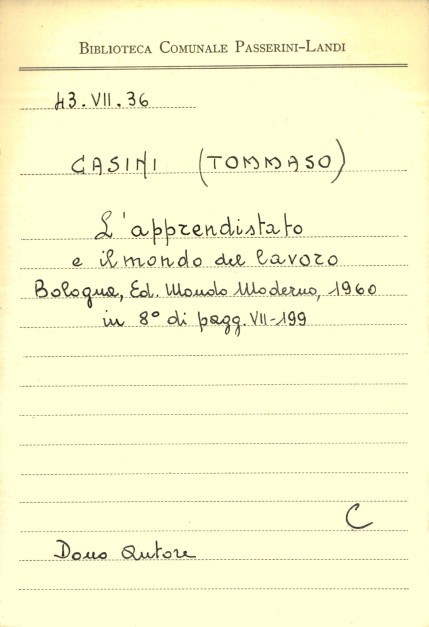 BIBLIOTECA COMUNALE PASSERINI-LANDI
43.VII.36
CASINI (TOMMASO)
L'apprendistato
e il mondo del lavoro
Bologna, Ed. Mondo Moderno, 1960
in 8° di pagg. VII-199
C
Dono Autore